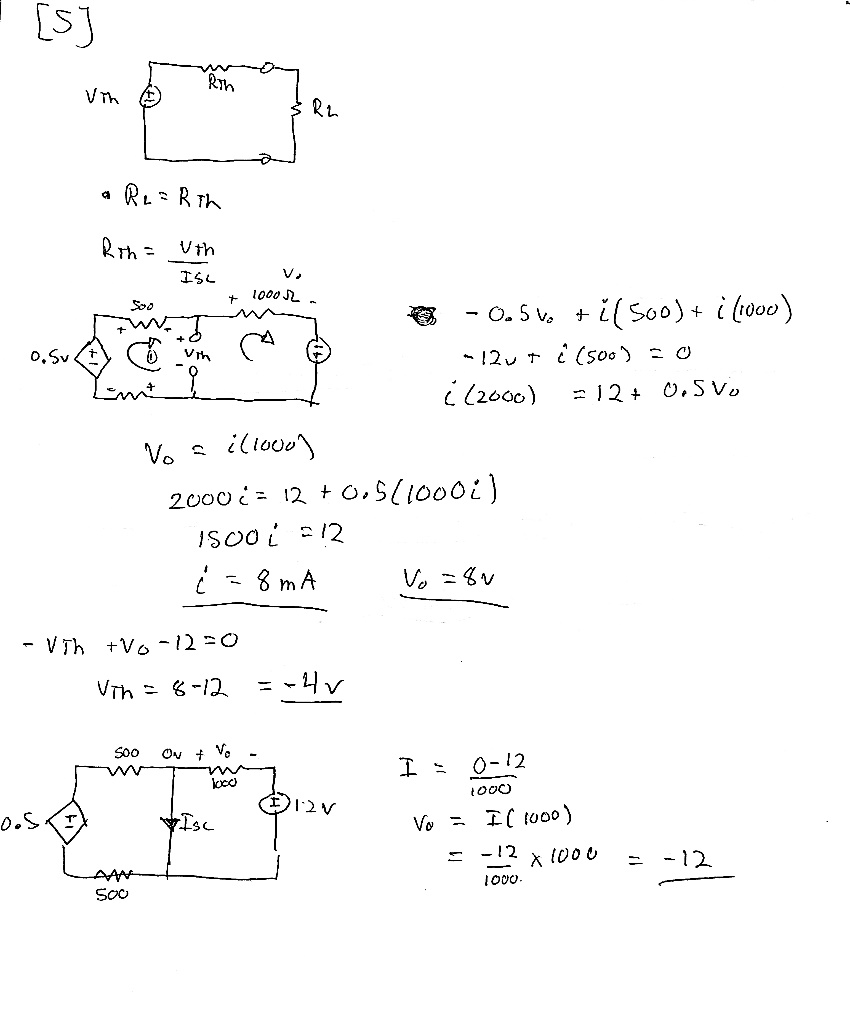 [5]
VTh
RTh
RL
• RL = RTh
RTh = VTh / ISC
500
+ 1000Ω -
Vo
0.5v
+ -
+
VTh
-
- +
- 0.5Vo + i(500) + i(1000)
- 12v + i(500) = 0
i(2000) = 12 + 0.5Vo
Vo = i(1000)
2000i = 12 + 0.5(1000i)
1500i = 12
i = 8mA
Vo = 8v
- VTh + Vo - 12 = 0
VTh = 8-12 = -4v
500 0v + Vo -
1000
0.5
ISC
12V
500
I = 0-12 / 1000
Vo = I(1000)
= -12/1000. x 1000 = -12